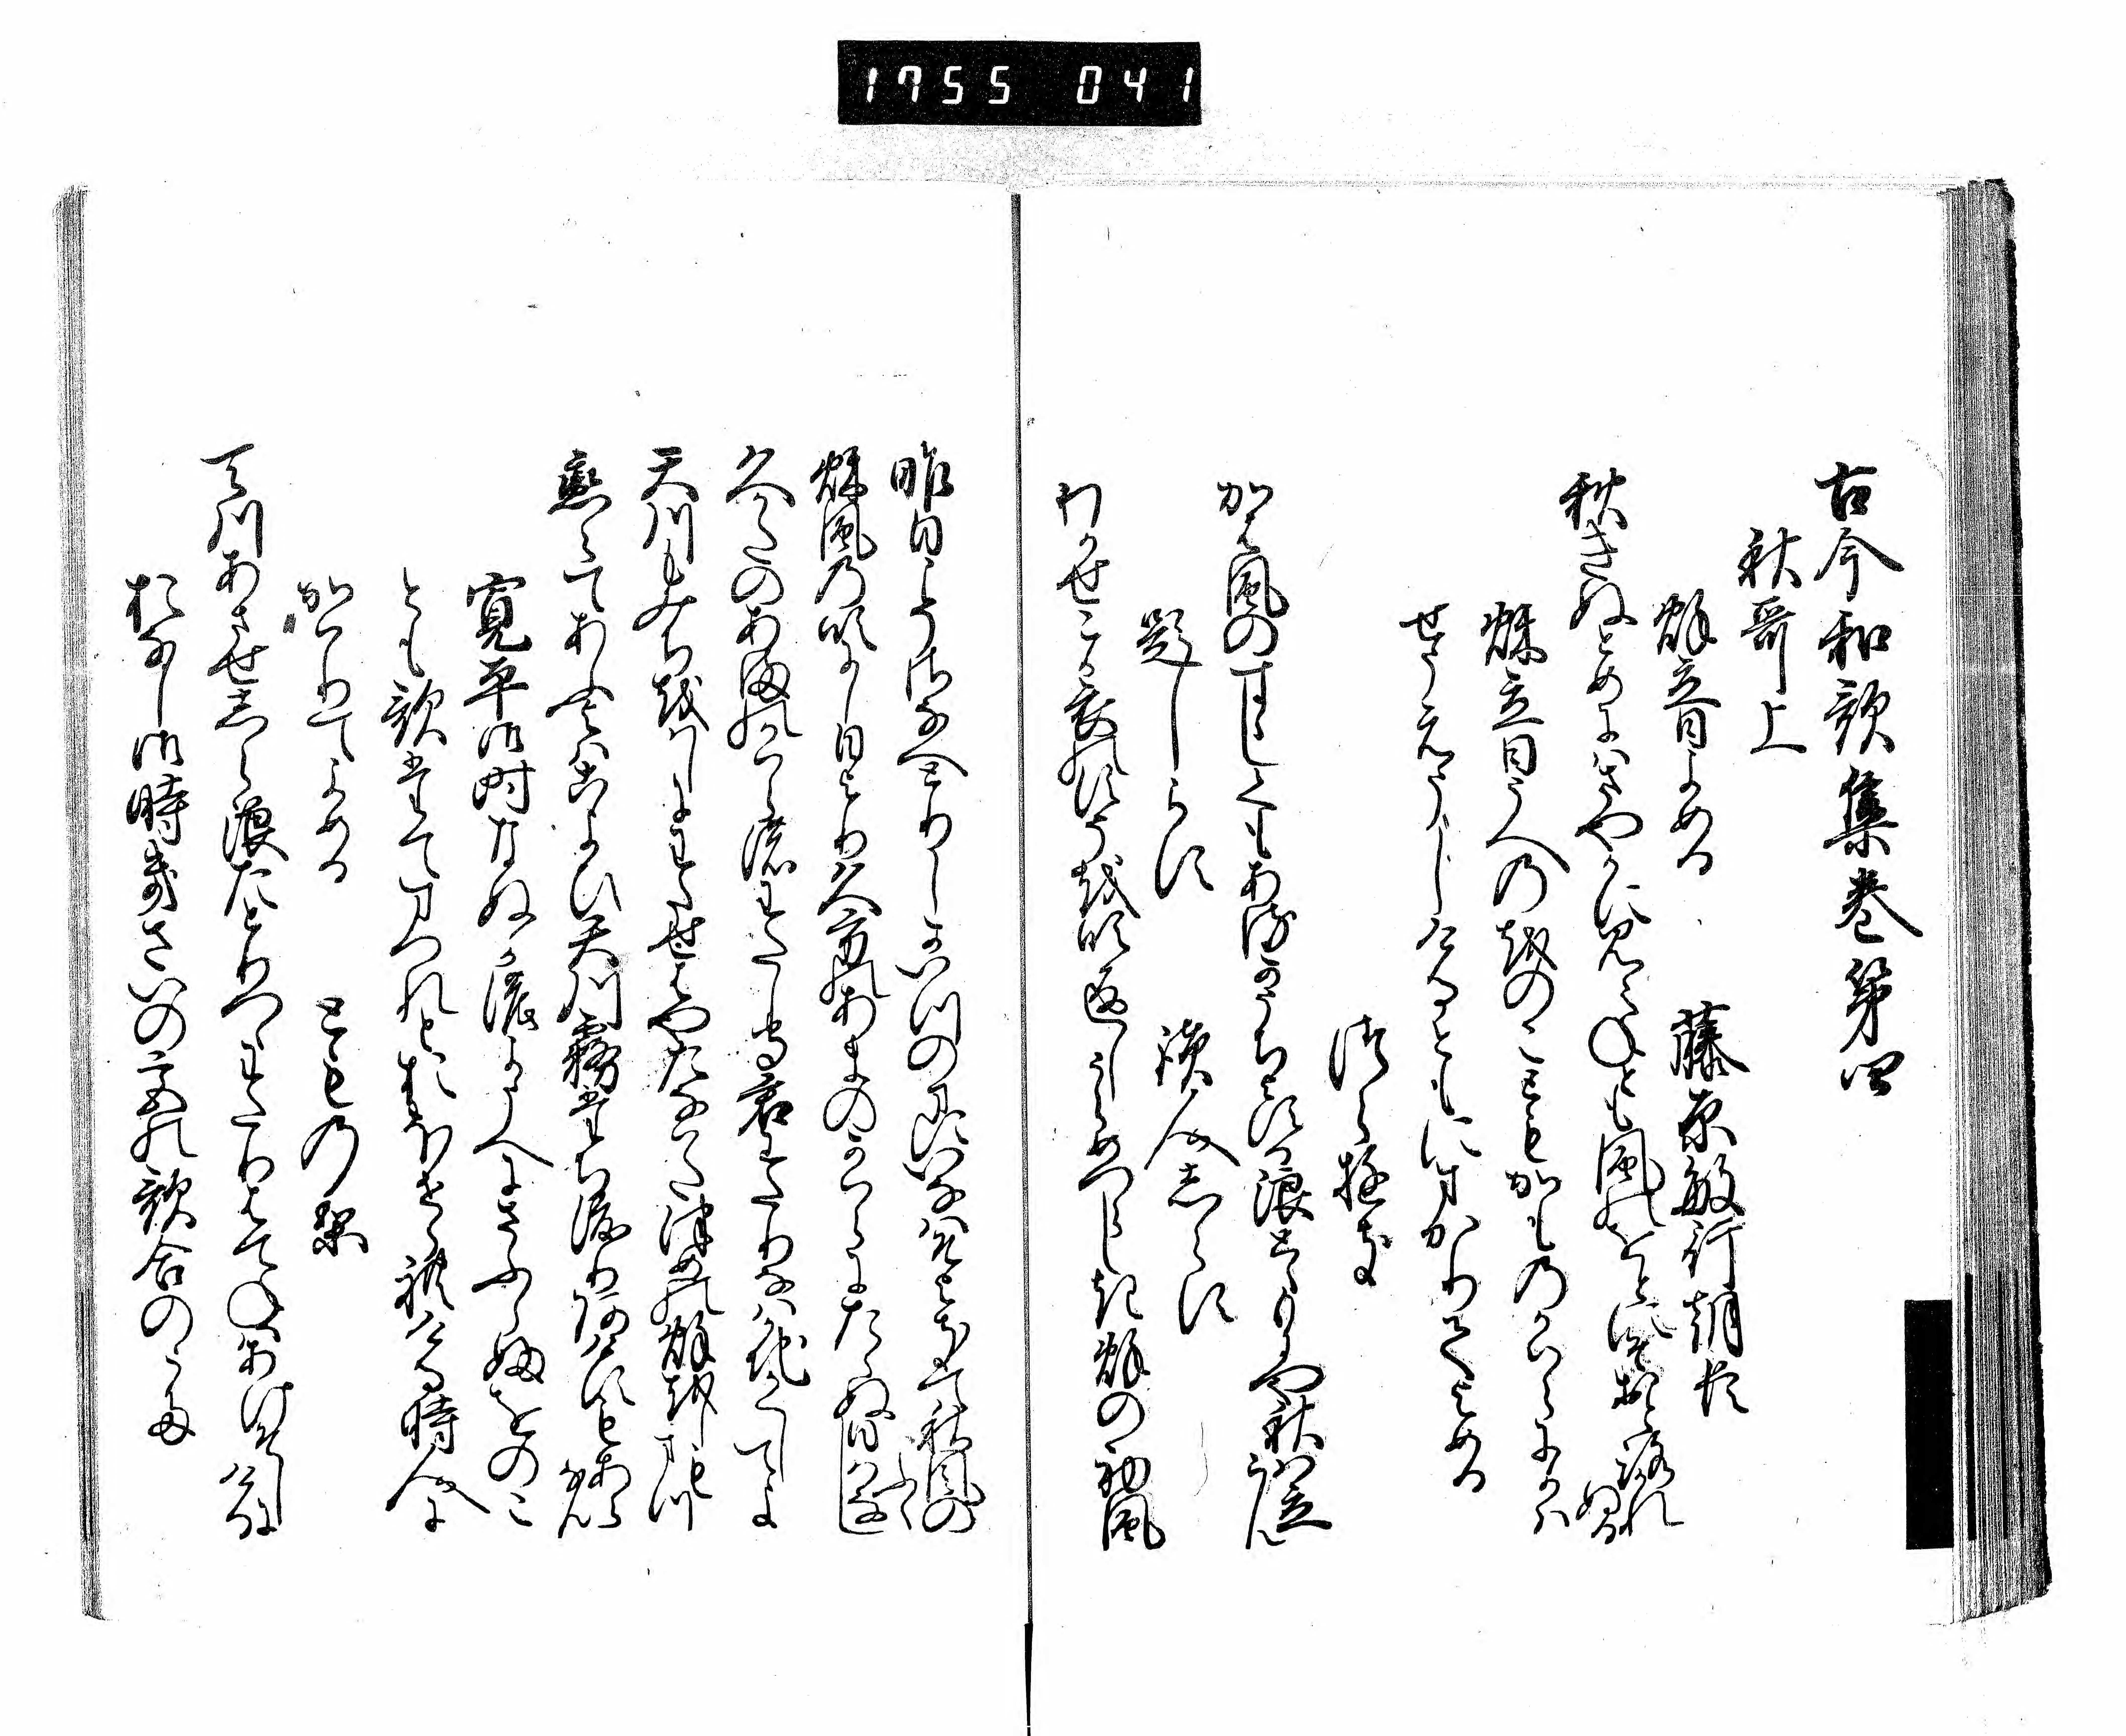 1755 041
古今和歌集巻第四
秋哥上
秌立日よめる 藤原敏行朝臣
秋きぬとめにはさやかに見えねとも風のをとにそおとろかれぬる
秌立日うへのをのこともかものかはらにかは
せうえうしけるともにまかりてよめる
つらゆき
かは風のすゝしくもあるかうちよする浪とゝもにや秋は立らん
題しらす 讀人しらす
わかせこか衣のすそを吹返しうらめつらしき秌の初風
昨日こそさなへとりしかいつのまにいなはそよきて秋風のふく
秌風の吹にし日より久方のあまのかはらにたゝぬ日はなし
久かたのあまのかはらの渡もり君わたりなはかちかくしてよ
天川もみちをはしにわたせはやたなはたつめの秌をしもまつ
恋〻てあふ夜はこよひ天川霧立ち渡りあけすもあらなん
寛平御時なぬかの夜うへにさふらふをのこ
とも歌たてまつれとおほせられける時人に
かはりてよめる
とものり
天川あさせしら浪たとりつゝわたりはてねはあけそしにける
おなし御時きさいの宮の歌合のうた